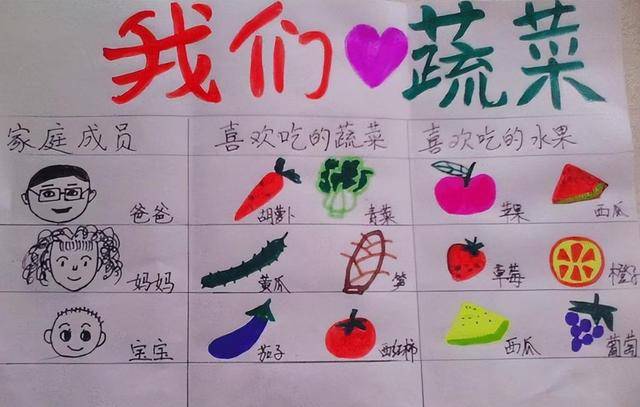 我们蔬菜
家庭成员 喜欢吃的蔬菜 喜欢吃的水果
爸爸 胡萝卜 青菜 苹果 西瓜
妈妈 黄瓜 笋 草莓 橙子
宝宝 茄子 西红柿 西瓜 葡萄